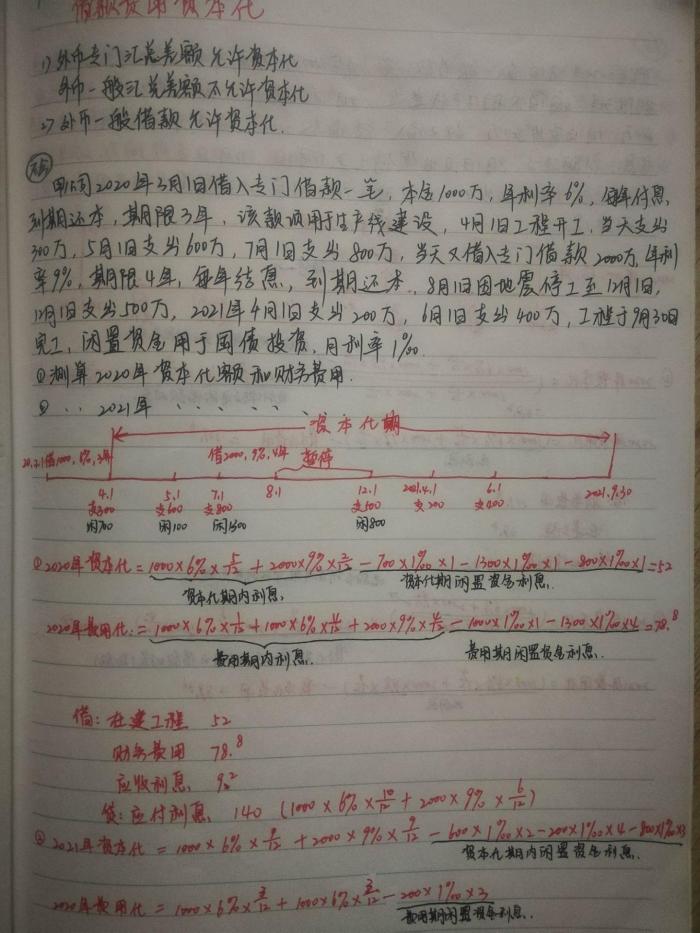 借款费用资本化
1) 外币专门汇兑差额允许资本化
外币一般汇兑差额不允许资本化
2) 外币一般借款允许资本化.
甲公司2020年3月1日借入专门借款一笔, 本金1000万, 年利率6%, 每年付息,
到期还本, 期限3年, 该款项用于生产线建设, 4月1日工程开工, 当天支出
300万, 5月1日支出600万, 7月1日支出800万, 当天又借入专门借款2000万, 年利
率9%, 期限4年, 每年结息, 到期还本. 8月1日因地震停工至12月1日,
12月1日支出500万, 2021年4月1日支出200万, 6月1日支出400万, 工程于9月30日
完工, 闲置资金用于国债投资, 月利率1‰.
①测算2020年资本化额和财务费用.
② ‥ 2021年 . . . . . .
资本化期
20.3.1借1000, 6%, 3年 借2000, 9%, 4年 暂停
4.1 5.1 7.1 8.1 12.1 2021.4.1 6.1 2021.9.30
支300 支600 支800 支500 支200 支400
闲700 闲100 闲1300 闲800
①2020年资本化 = 1000×6%×5/12 + 2000×9%×2/12 - 700×1‰×1 - 1300×1‰×1 - 800×1‰×1 = 52
资本化期内利息. 资本化期闲置资金利息.
2020年费用化: = 1000×6%×1/12 + 1000×6%×4/12 + 2000×9%×4/12 - 1000×1‰×1 - 1300×1‰×4 = 78.8
费用期内利息. 费用期闲置资金利息.
借: 在建工程 52
财务费用 78.8
应收利息 9.2
贷: 应付利息 140 (1000×6%×10/12 + 2000×9%×6/12)
②2021年资本化 = 1000×6%×9/12 + 2000×9%×9/12 - 600×1‰×2 - 200×1‰×4 - 800×1‰×3
资本化期内闲置资金利息.
2020年费用化 = 1000×6%×3/12 + 1000×6%×3/12 - 200×1‰×3
费用期闲置资金利息.